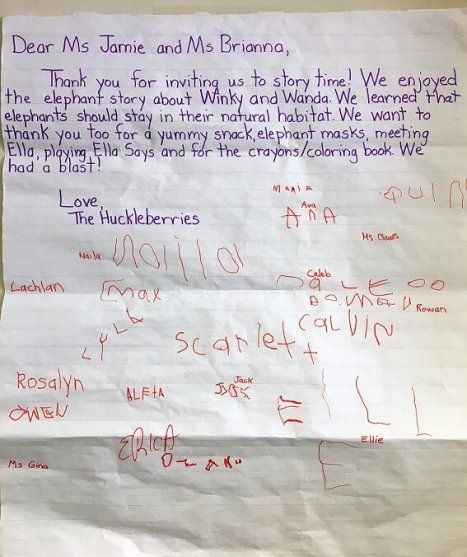 Dear Ms Jamie and Ms Brianna,
Thank you for inviting us to story time! We enjoyed
the elephant story about Winky and Wanda. We learned that
elephants should stay in their natural habitat. We want to
thank you too for a yummy snack, elephant masks, meeting
Ella, playing Ella Says and for the crayons/coloring book. We
had a blast!
Love,
The Huckleberries
QUIN
Ava
AVA
Ms. Clouds
Naila
Naila
Caleb
Lachlan
max
Rowan
Lyla
CALVIN
scarlett
Rosalyn
ALETA
Jack
OWEN
ELL
Ellie
ERICA
E
Ms Gina